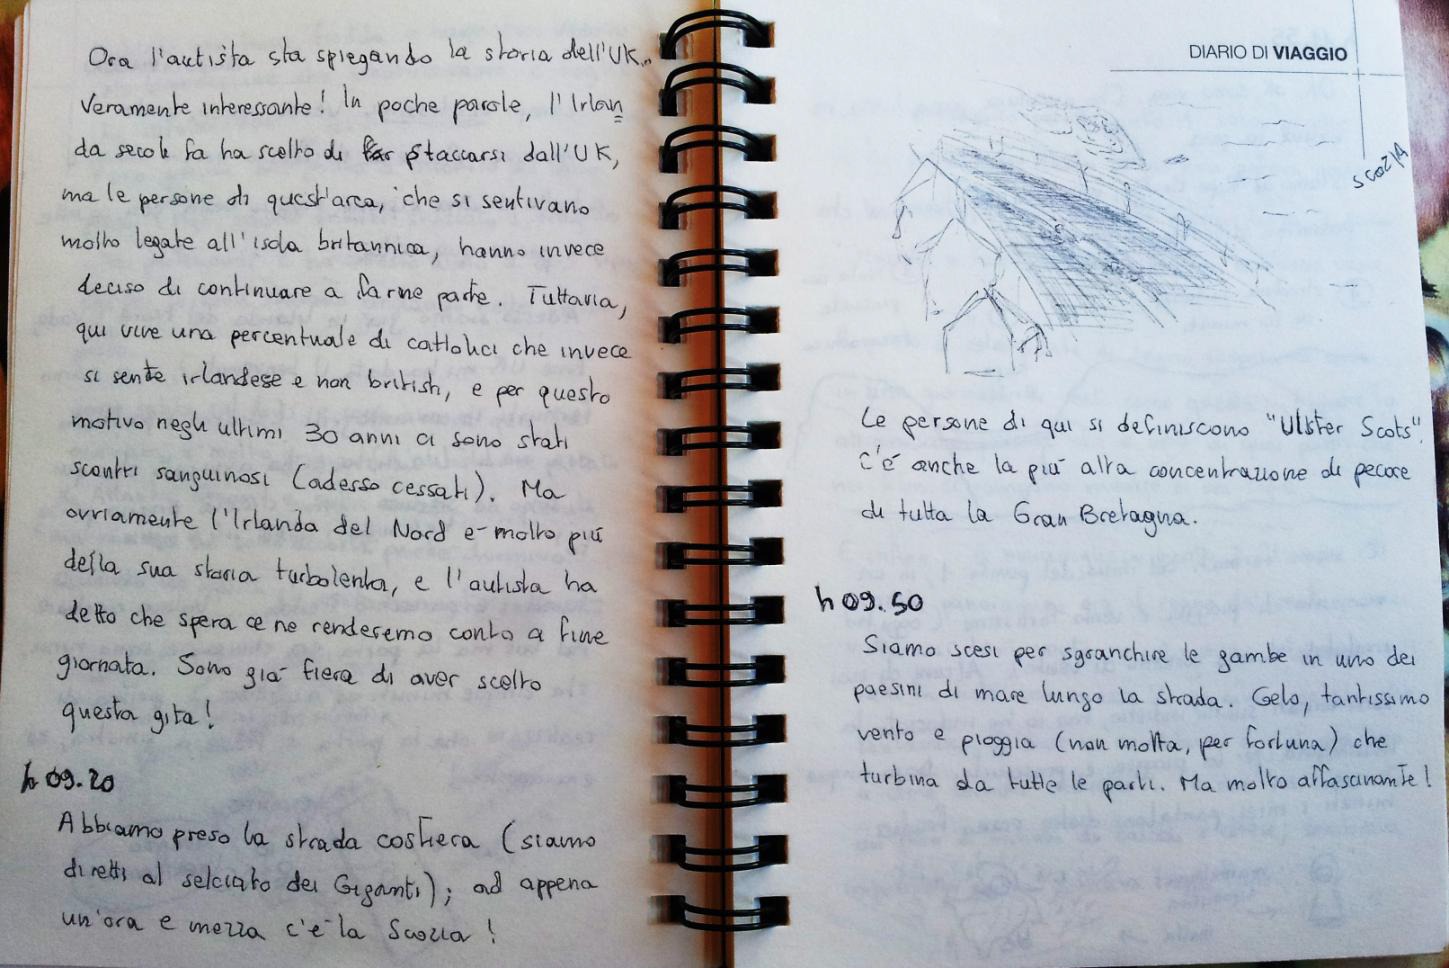 Ora l'autista sta spiegando la storia dell'UK...
Veramente interessante! In poche parole, l'Irlan
da secoli fa ha scelto di staccarsi dall'UK,
ma le persone di quest'area, che si sentivano
molto legate all'isola britannica, hanno invece
deciso di continuare a farne parte. Tuttavia,
qui vive una percentuale di cattolici che invece
si sente irlandese e non british, e per questo
motivo negli ultimi 30 anni ci sono stati
scontri sanguinosi (adesso cessati). Ma
ovviamente l'Irlanda del Nord e' molto più
della sua storia turbolenta, e l'autista ha
detto che spera ce ne renderemo conto a fine
giornata. Sono già fiera di aver scelto
questa gita!
h 09.20
Abbiamo preso la strada costiera (siamo
diretti al selciato dei Giganti); ad appena
un'ora e mezza c'è la Scozia!
DIARIO DI VIAGGIO
SCOZIA
Le persone di qui si definiscono "Ulster Scots".
C'è anche la più alta concentrazione di pecore
di tutta la Gran Bretagna.
h 09.50
Siamo scesi per sgranchire le gambe in uno dei
paesini di mare lungo la strada. Gelo, tantissimo
vento e pioggia (non molta, per fortuna) che
turbina da tutte le parti. Ma molto affascinante!